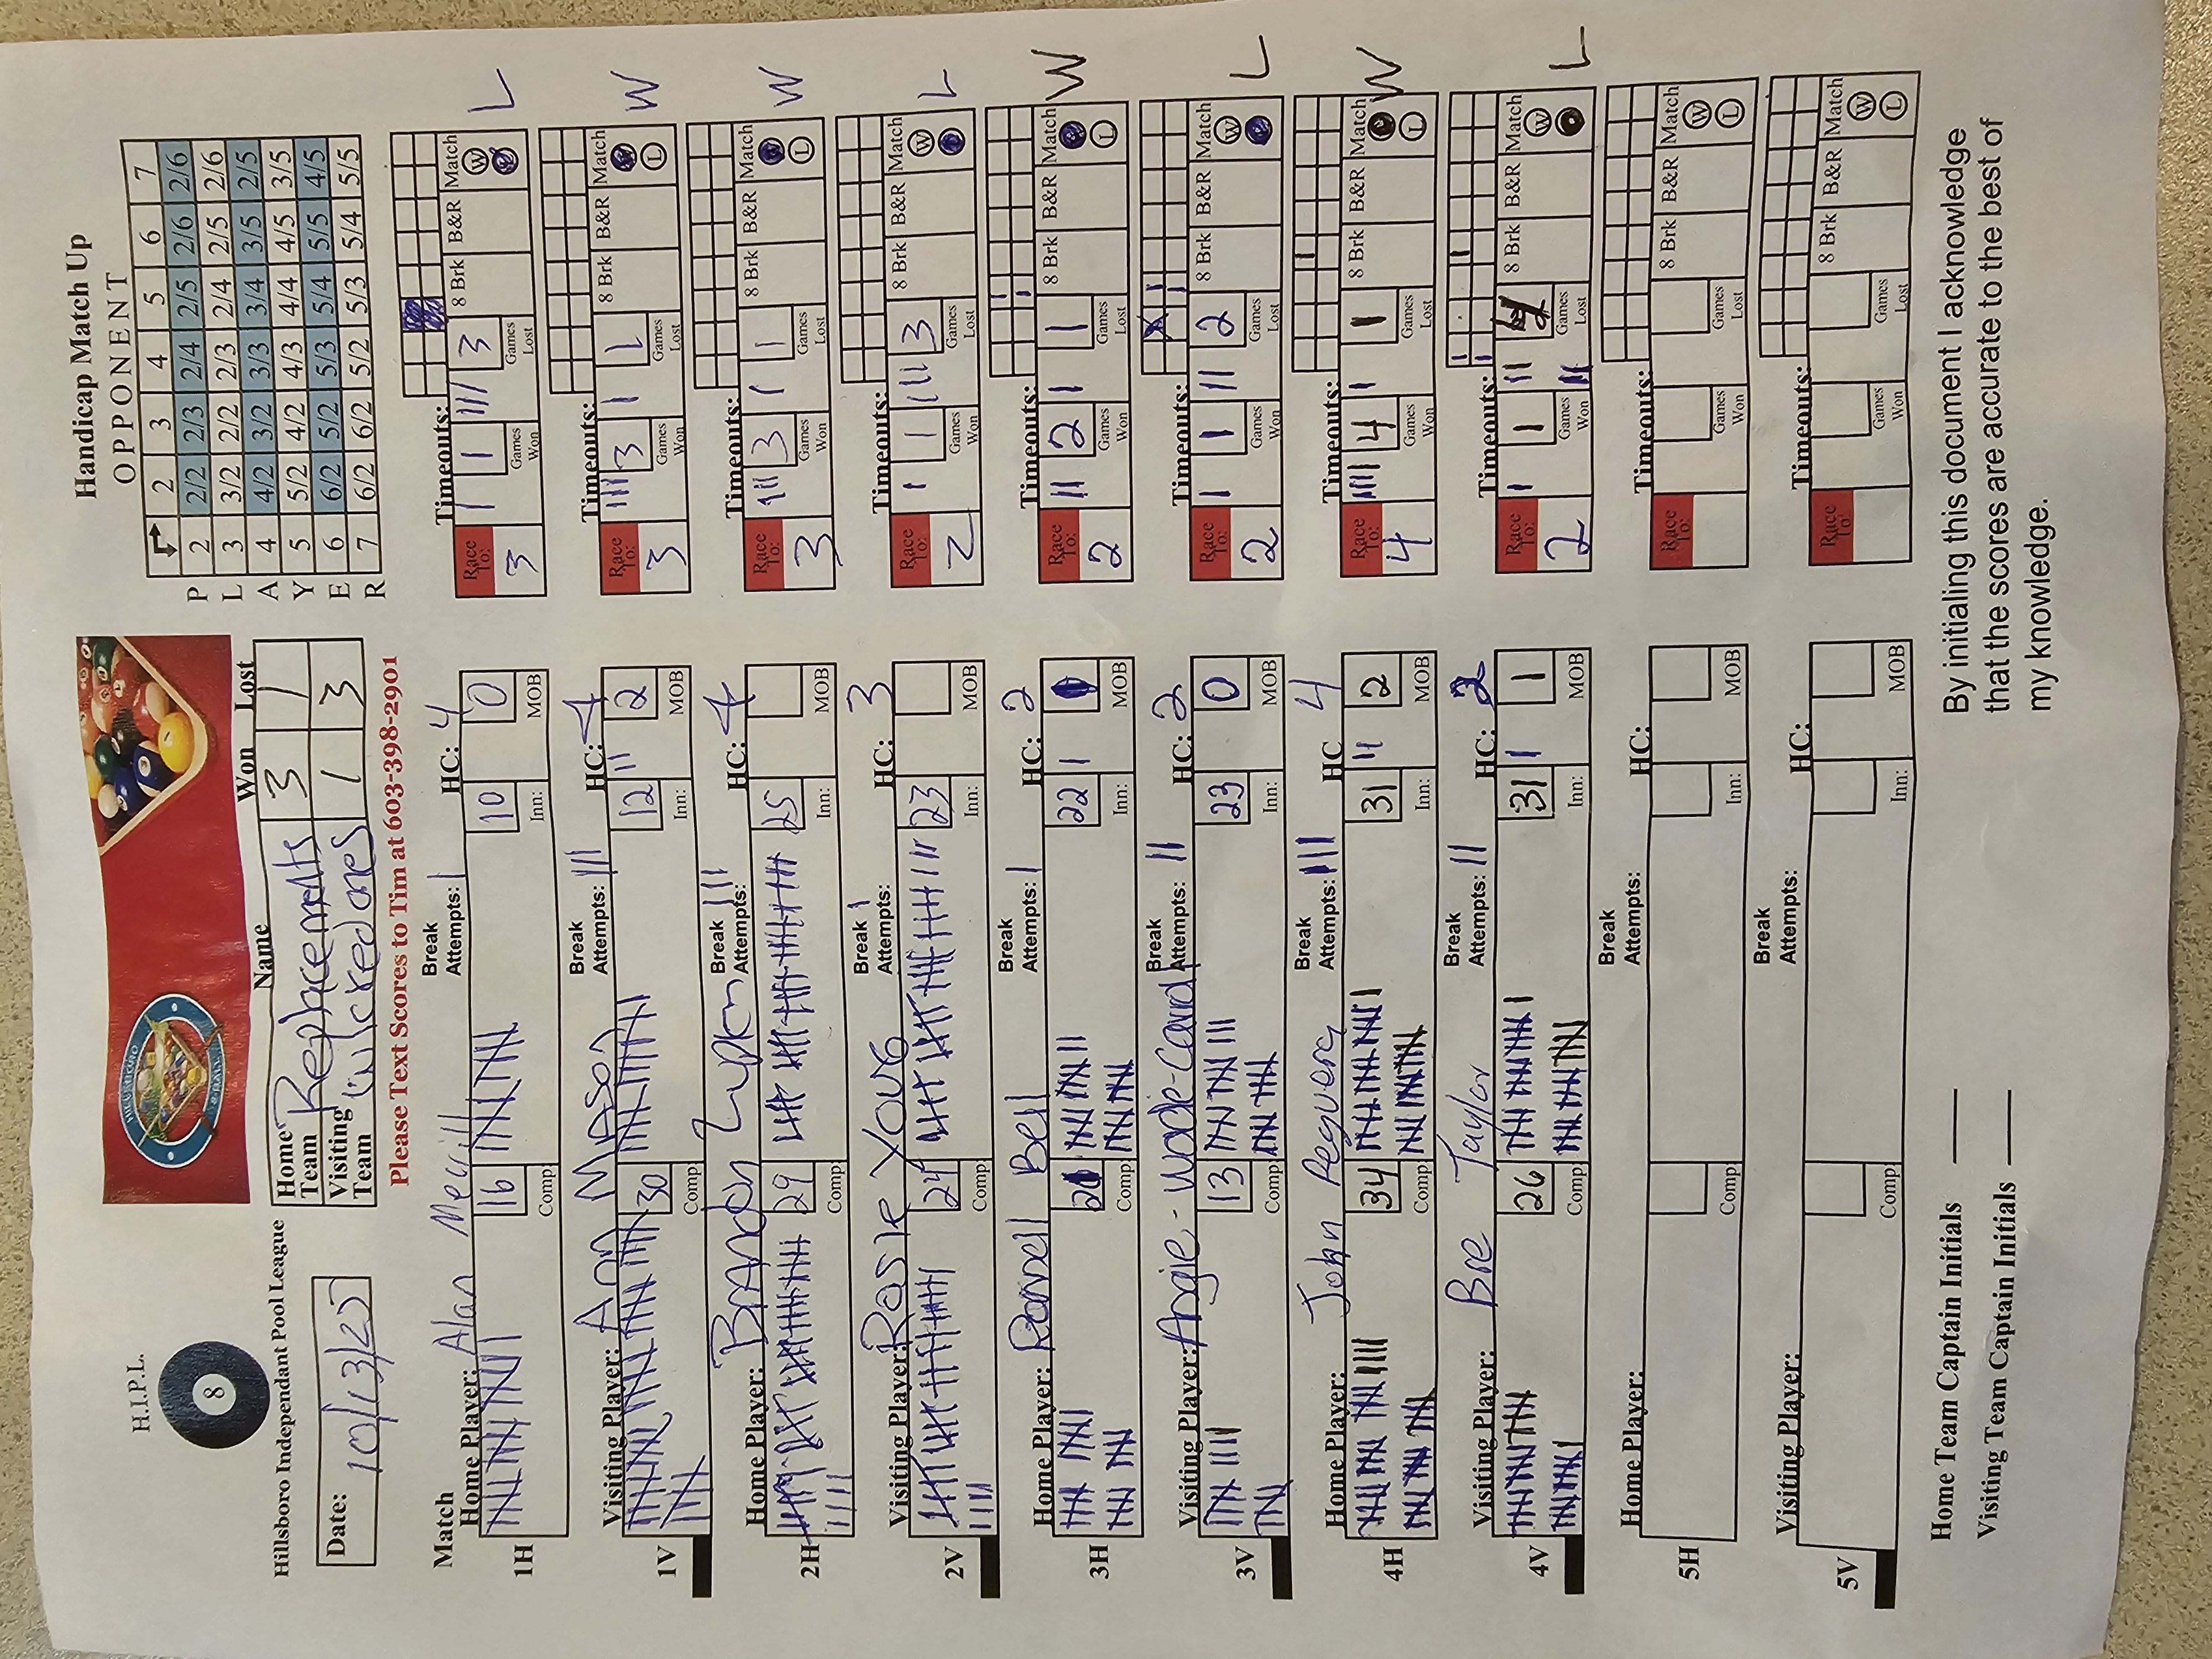 H.I.P.L.
8
Hillsboro Independant Pool League
Date: 10/13/25
HILLSBORO
Name Won Lost
Home Team Replacements 3 1
Visiting Team 1 3
Please Text Scores to Tim at 603-398-2901
Handicap Match Up
OPPONENT
2 3 4 5 6 7
P 2 2/2 2/3 2/4 2/5 2/6 2/6
L 3 3/2 2/2 2/3 2/4 2/5 2/6
A 4 4/2 3/2 3/3 3/4 3/5 2/5
Y 5 5/2 4/2 4/3 4/4 4/5 3/5
E 6 6/2 5/2 5/3 5/4 5/5 4/5
R 7 6/2 6/2 5/2 5/3 5/4 5/5
Match
Home Player: Alan Merrill Break Attempts: | HC: 4 Timeouts:
1H 16 Comp 10 Inn: 0 MOB Race To: 3 | 1 Games Won ||| 3 Games Lost 8 Brk B&R Match W L L
Visiting Player: Aron Mason Break Attempts: ||| HC: 4 Timeouts:
1V 30 Comp 12 Inn: || 2 MOB Race To: 3 ||| 3 Games Won | 1 Games Lost 8 Brk B&R Match W L W
Home Player: Brandon Break Attempts: ||| HC: 4 Timeouts:
2H 29 Comp 25 Inn: MOB Race To: 3 ||| 3 Games Won | 1 Games Lost 8 Brk B&R Match W L W
Visiting Player: Rosie Young Break Attempts: | HC: 3 Timeouts:
2V 24 Comp 23 Inn: MOB Race To: 2 | 1 Games Won ||| 3 Games Lost 8 Brk B&R Match W L L
Home Player: Randell Bell Break Attempts: | HC: 2 Timeouts:
3H Comp 22 Inn: | MOB Race To: 2 || 2 Games Won | 1 Games Lost 8 Brk B&R Match W L W
Visiting Player: Angie-Wade-Card Break Attempts: || HC: 2 Timeouts:
3V 13 Comp 23 Inn: 0 MOB Race To: 2 | 1 Games Won || 2 Games Lost 8 Brk B&R Match W L L
Home Player: John Peguero Break Attempts: |||| HC 4 Timeouts:
4H 34 Comp 31 Inn: || 2 MOB Race To: 4 |||| 4 Games Won | 1 Games Lost 8 Brk B&R Match W L W
Visiting Player: Bre Taylor Break Attempts: || HC: 2 Timeouts:
4V 26 Comp 31 Inn: | 1 MOB Race To: 2 | 1 Games Won || || 4 Games Lost 8 Brk B&R Match W L L
Home Player: Break Attempts: HC: Timeouts:
5H Comp Inn: MOB Race To: Games Won Games Lost 8 Brk B&R Match W L
Visiting Player: Break Attempts: HC: Timeouts:
5V Comp Inn: MOB Race To: Games Won Games Lost 8 Brk B&R Match W L
Home Team Captain Initials
Visiting Team Captain Initials
By initialing this document I acknowledge
that the scores are accurate to the best of
my knowledge.